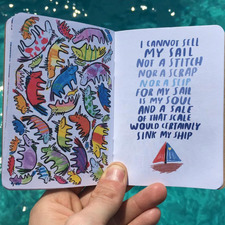 I CANNOT SELL
MY SAIL
NOT A STITCH
NOR A SCRAP
NOR A STRIP
FOR MY SAIL
IS MY SOUL
AND A SALE
OF THAT SCALE
WOULD CERTAINLY
SINK MY SHIP